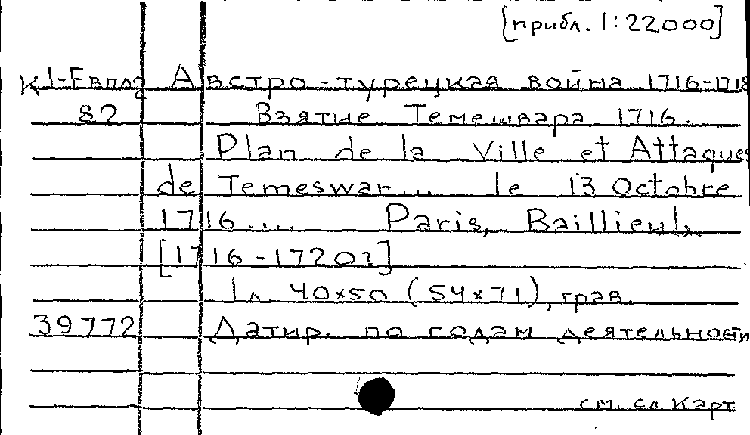 [прибл. 1:22000]
К1-Евпл2 Австро-турецкая война 1716-1718
82 Взятие Темешвара 1716.
Plan de la Ville et Attaques
de Temeswar... le 13 Octobre
1716.... Paris, Baillieul,
[1716-1720г]
1л 40x50 (54x71), грав.
39772 Датир. по годам деятельности
см. сл карт